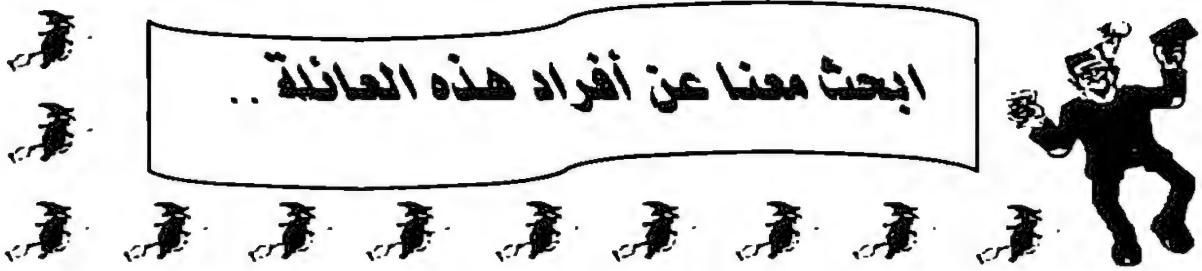 ابحث معنا عن أفراد هذه العائلة ..